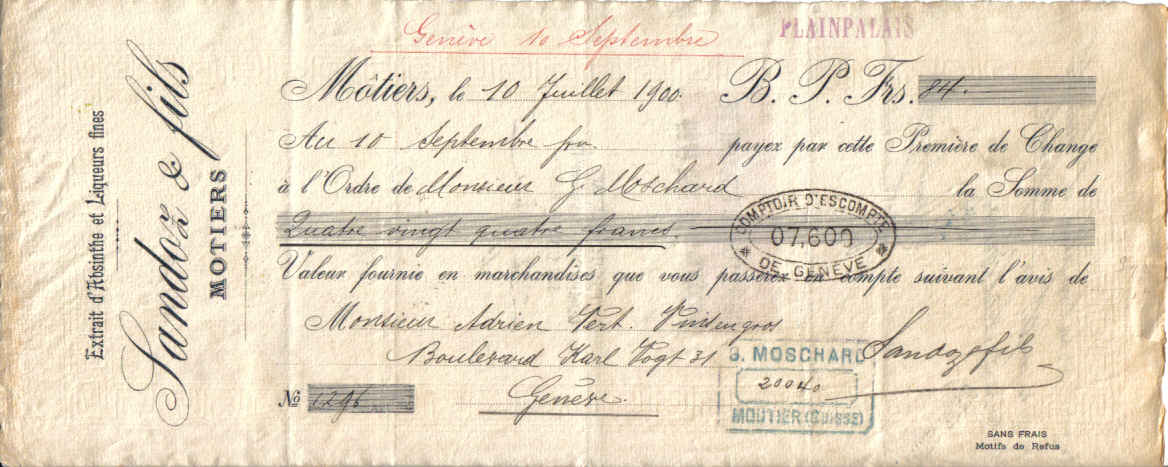 Extrait d'Absinthe et Liqueurs fines
Sandoz & fils
MOTIERS
Genève 10 Septembre
PLAINPALAIS
Môtiers, le 10 Juillet 1900. B. P. Frs. 84.-
Au 10 Septembre fro. payez par cette Première de Change
à l'Ordre de Monsieur G. Moschard la Somme de
Quatre vingt quatre francs
COMPTOIR D'ESCOMPTE
07,600
DE GENÈVE
Valeur fournie en marchandises que vous passerez en compte suivant l'avis de
Monsieur Adrien Vins en gros
Boulevard Karl Vogt 31
Sandoz & fils
G. MOSCHARD
20040
MOUTIER (SUISSE)
No. 1296
Genève.
SANS FRAIS
Motifs de Refus